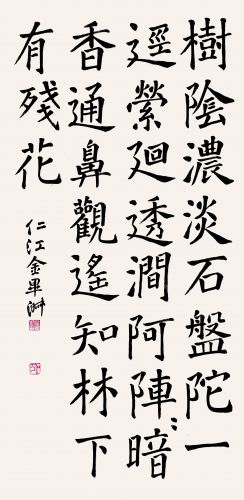 樹陰濃淡石盤陀一
逕縈廻透澗阿陣〻暗
香通鼻觀遙知林下
有殘花
仁江金畢